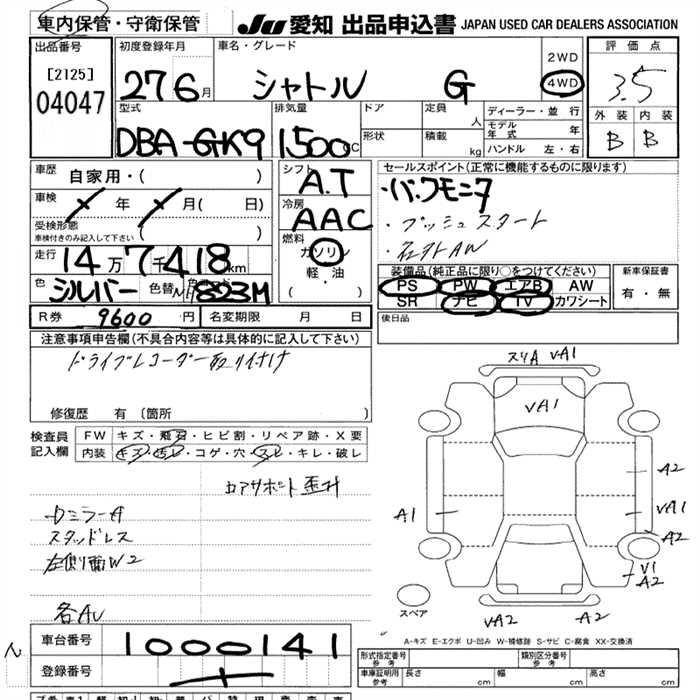 車内保管・守衛保管
JU 愛知 出品申込書 JAPAN USED CAR DEALERS ASSOCIATION
出品番号
[2125]
04047
初度登録年月
27 6月
車名・グレード
シャトル G
2WD
4WD
評価点
3.5
外装 内装
B B
型式
DBA-GK9
排気量
1500cc
ドア
形状
定員
人
積載
kg
ディーラー・並行
モデル年式 年
ハンドル 左・右
車歴
自家用・( )
車検
年 月( 日)
受検形態
車検付きのみ記入して下さい ( )
走行
14万7千418km
色
シルバー
色替
NH823M
シフト
A.T
冷房
AAC
燃料
ガソリン
軽・油
( )
セールスポイント(正常に機能するものに限ります)
・プッシュスタート
装備品(純正品に限り○をつけてください)
PS PW エアB AW
SR ナビ TV カワシート
新車保証書
有・無
R券 9600円
名変期限 月 日
後日品
注意事項申告欄(不具合内容等は具体的に記入して下さい)
ドライブレコーダー取り付け
修復歴 有 (箇所 )
検査員記入欄
FW キズ・飛石・ヒビ割・リペア跡・X要
内装 キズ・汚レ・コゲ・穴・スレ・キレ・破レ
コアサポート歪み
スタッドレス
左側面W2
各AU
スリA VA1
VA1
A2
VA1
A2
A1
V1
A2
スペア
VA2
A2
A-キズ E-エクボ U-凹み W-補修跡 S-サビ C-腐食 XX-交換済
車台番号
1000141
登録番号
形式指定番号 参考
類別区分番号 参考
車庫証明用 参考
長さ cm
幅 cm
高さ cm